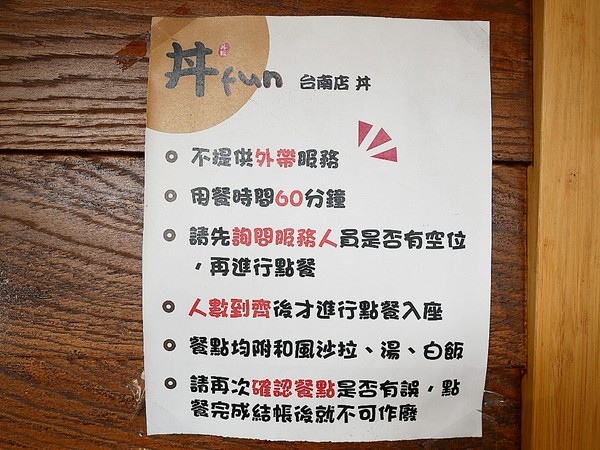 丼fun 台南店 丼
不提供外帶服務
用餐時間60分鐘
請先詢問服務人員是否有空位
，再進行點餐
人數到齊後才進行點餐入座
餐點均附和風沙拉、湯、白飯
請再次確認餐點是否有誤，點
餐完成結帳後就不可作廢